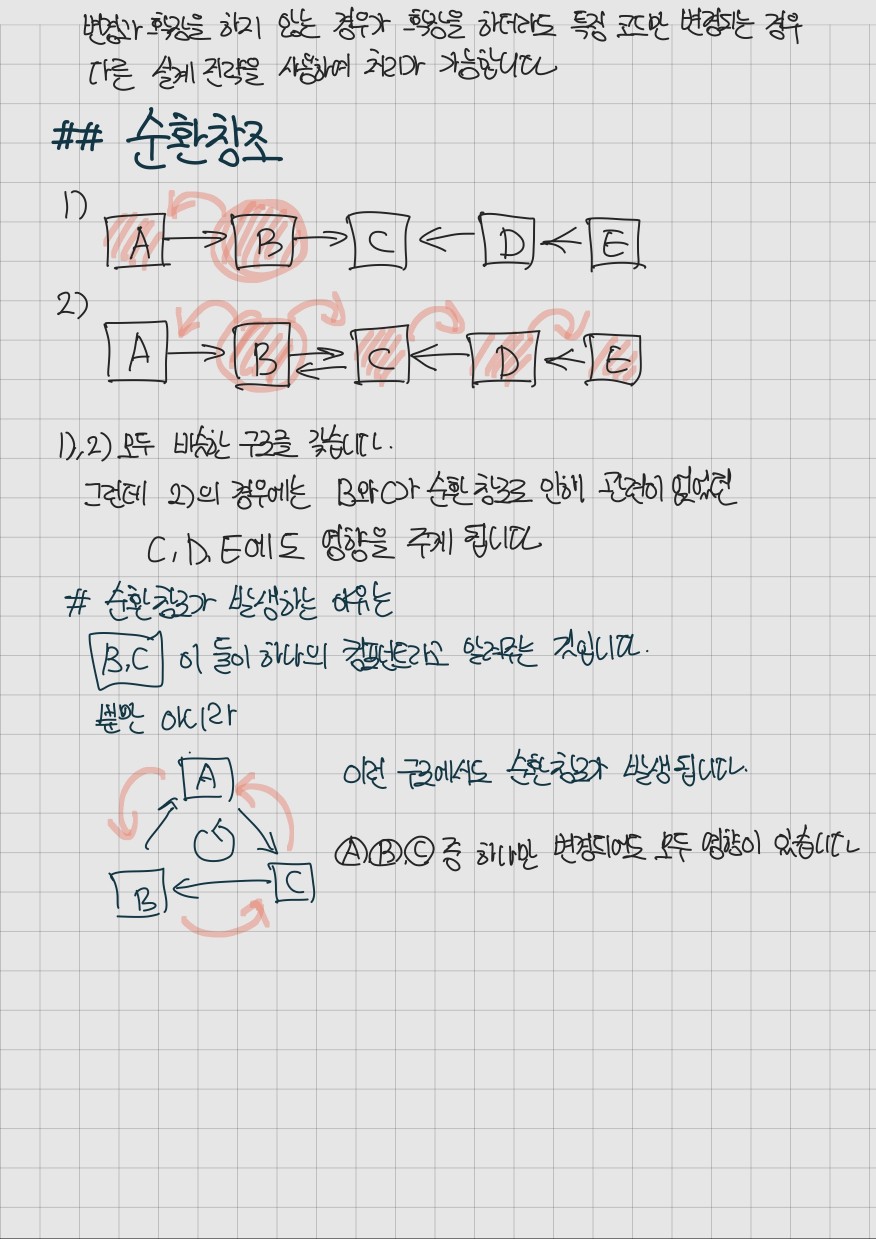 변경과 확장을 하지 않는 경우가 확장을 하더라도 특정 코드만 변경되는 경우
다른 설계 전략을 사용하여 처리가 가능합니다
## 순환창조
1)
A B C D E
2)
A B C D E
1), 2) 모두 비슷한 구조를 갖습니다.
그런데 2)의 경우에는 B와C가 순환 참조로 인해 관련이 없었던
C, D, E에도 영향을 주게 됩니다
# 순환참조가 발생하는 이유는
B,C 이 둘이 하나의 컴포넌트라고 알려주는 것입니다.
뿐만 아니라
A
이런 구조에서도 순환참조가 발생 됩니다.
Ⓐ,Ⓑ,Ⓒ 중 하나만 변경되어도 모두 영향이 있습니다
B C